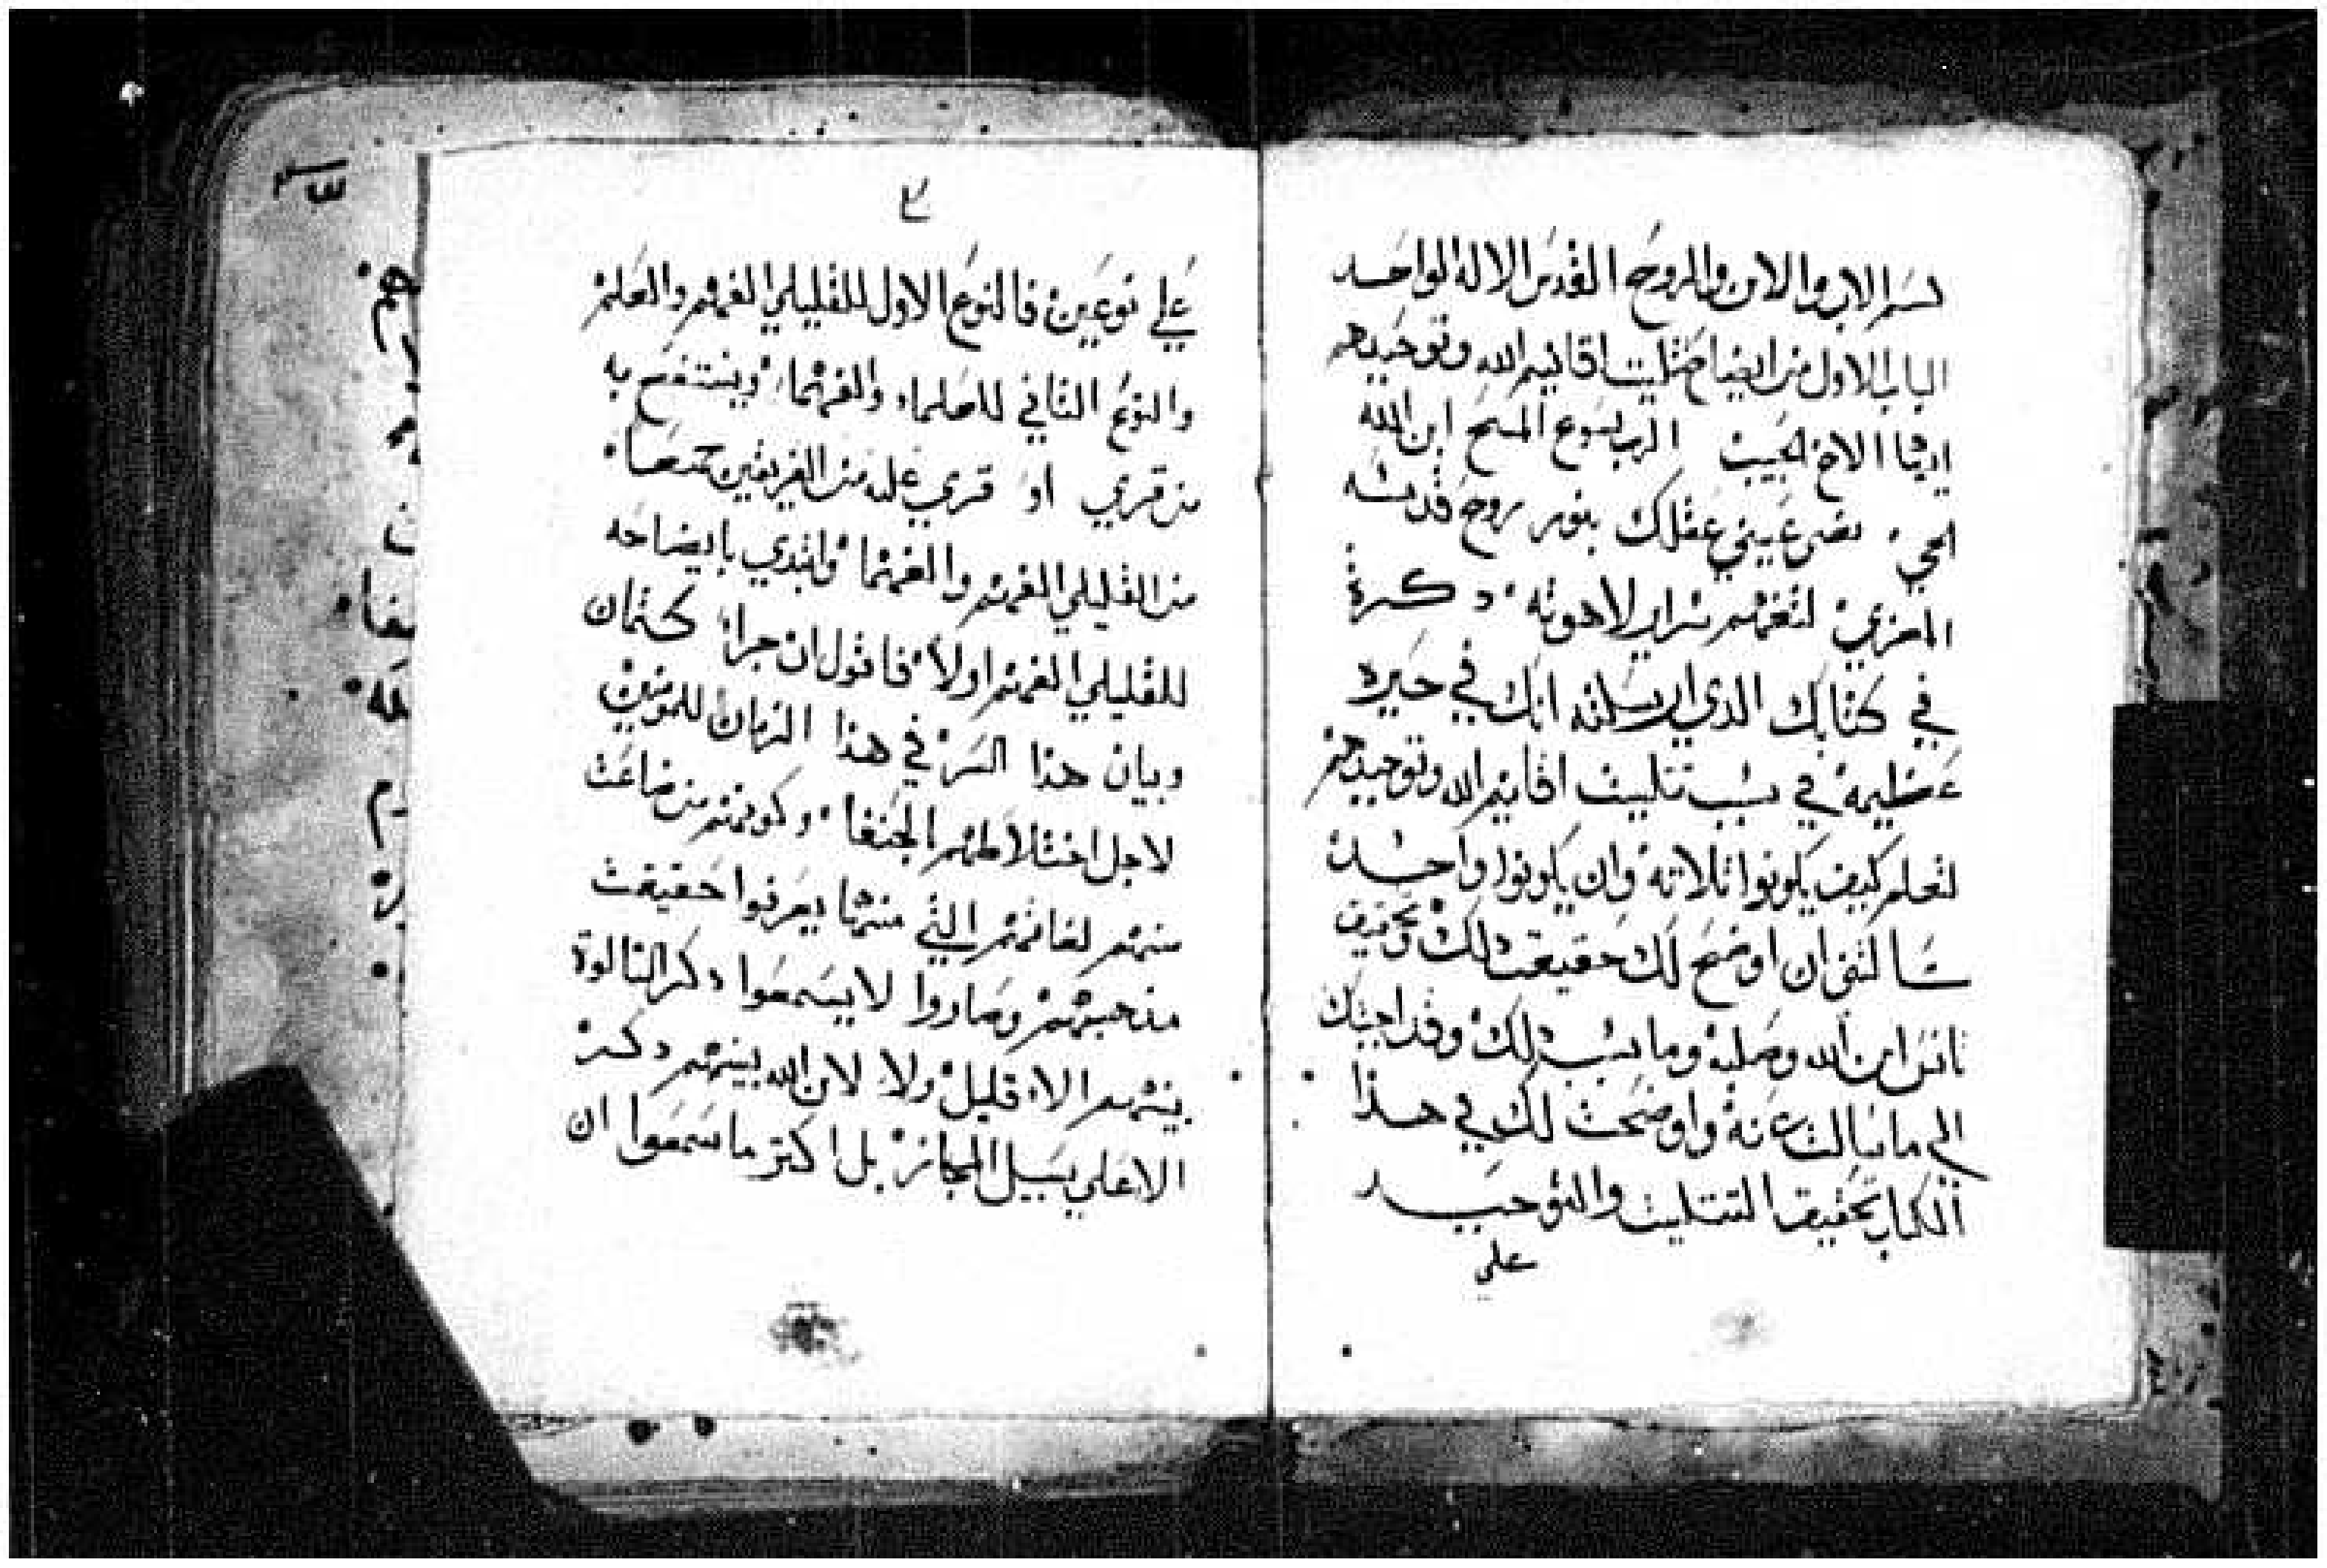 بسم الاب والابن والروح القدس الاله الواحد
الباب الاول من ايضاح تثليت اقانيم الله وتوحيدهم
ايها الاخ الحبيب الرب يسوع المسيح ابن الله
الحي يضي عيني عقلك بنور روح قدسه
المعزي لتفهم سراير لاهوته دكرة
في كتابك الدي ارسلته انك في حيره
عظيمه في سبب تتليت اقانيم الله وتوحيدهم
لتعلم كيف يكونوا تلاته وان يكونوا واحد
سالتني ان اوضح لك حقيقت دلك وتحقيق
تانس ابن الله وصلبه وما سبب دلك وقد اجبتك
الي ما سالت عنه واوضحت لك في هدا
الكتاب تحقيق التتليت والتوحيد
علي
علي نوعين فالنوع الاول للقليلي الفهم والعلم
والنوع التاني للعلماء والفهما وينتفع به
من قري او قري عليه من الفريقين جميعا
من القليلي الفهم والفهما وابتدي بايضاحه
للقليلي الفهم اولا فاقول ان جرا كتمان
وبيان هدا السر في هدا الزمان للمومنين
لاجل اختلاطهم الحنفا وكونهم من ضاعت
منهم لغاتهم التي منها يعرفوا حقيقت
مدهبهم وصاروا لا يسمعوا دكر التالوت
بينهم الا قليل ولا لابن الله بينهم دكر
الا علي سبيل المجاز بل اكتر ما سمعوا ان